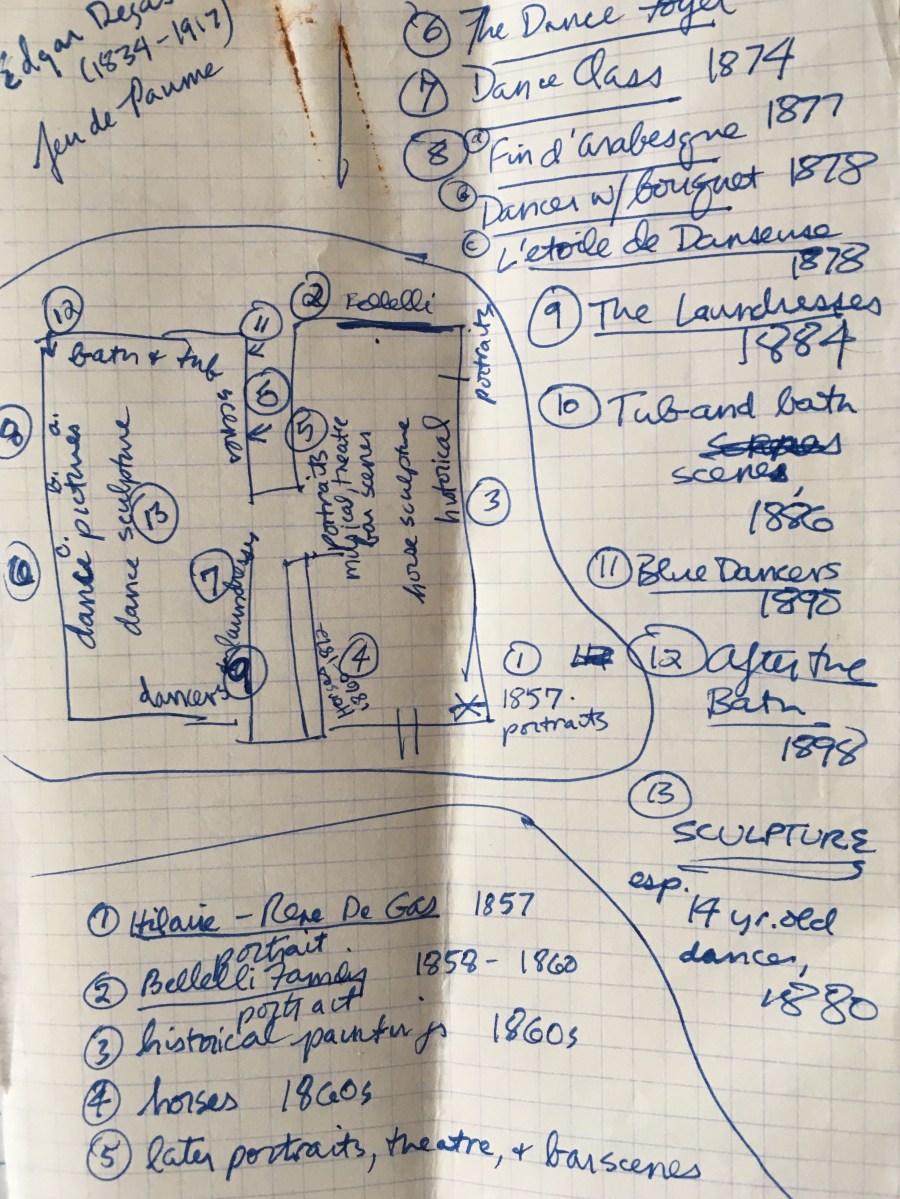 Edgar Degas
(1834-1917)
Jeu de Paume
⑥ The Dance Foyer
⑦ Dance Class 1874
⑧ ⓐ Fin d'arabesque 1877
ⓑ Dancer w/ bouquet 1878
ⓒ L'etoile de Danseuse
1878
⑨ The Laundresses
1884
⑩ Tub and bath
scenes,
1886
⑪ Blue Dancers
1890
⑫ After the
Bath
1898
⑬
SCULPTURE
esp.
14 yr. old
dancer,
1880
⑫
bath & tub
⑪
② Bellelli
portraits
⑧
a.
b.
c.
dance pictures
dance sculpture
⑬
⑥
⑦
laundresses
⑨
dancers
scenes
⑤
portraits
musical, theatre
bar scenes
horse sculpture
historical
③
④
Horses
① 1857.
portraits
① Hilaire - Rene De Gas 1857
portrait.
② Bellelli Family 1858 - 1860
portrait
③ historical paintings 1860s
④ horses 1860s
⑤ later portraits, theatre, & bar scenes